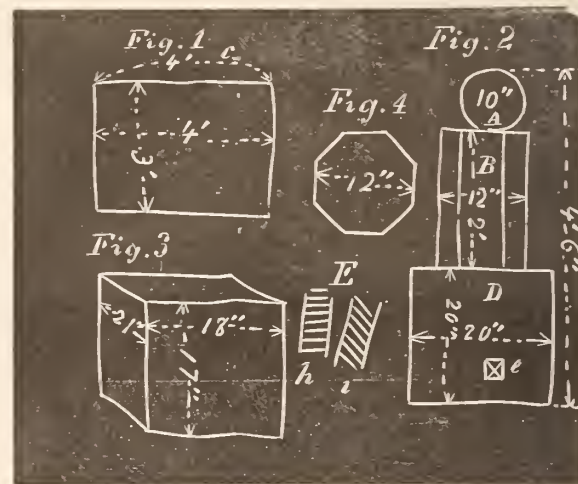 Fig. 1
4' c
4'
3'
Fig. 2
10"
A
B
12"
2'
4' 6"
D
20" 20"
e
Fig. 4
12"
Fig. 3
21" 18"
17"
E
h i